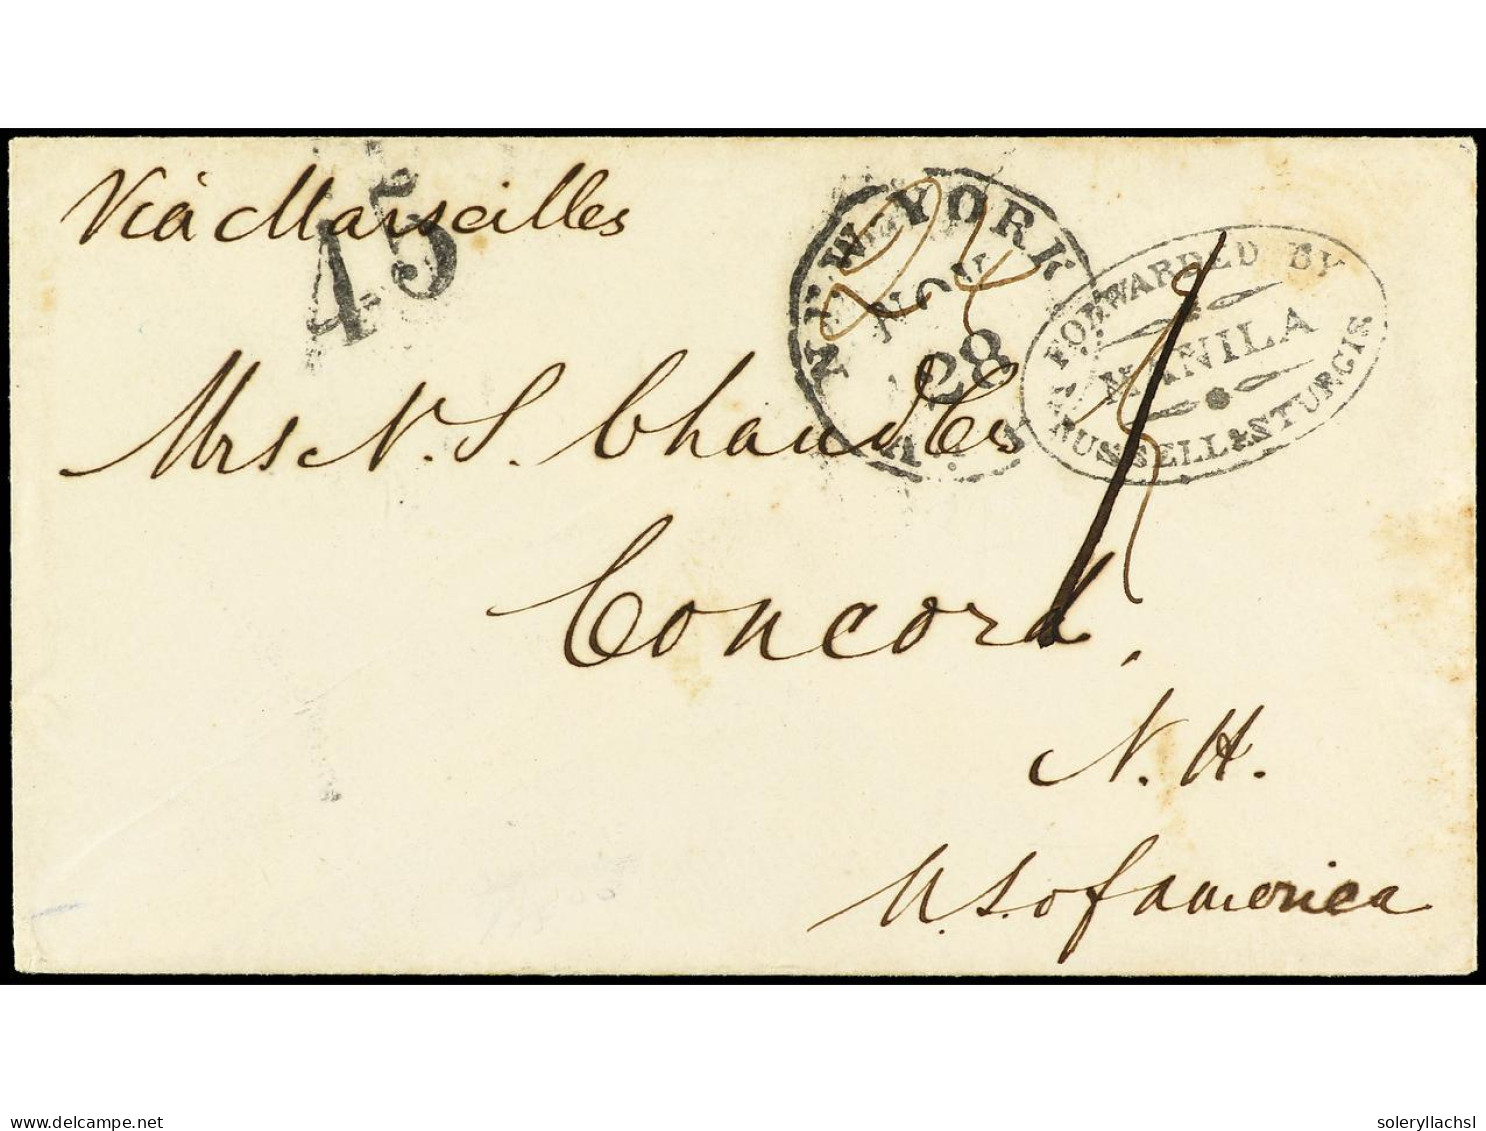 Viâ Marseilles
45
NEW YORK
NOV
28
FORWARDED BY
MANILA
RUSSELL & STURGIS
Mrs N. S. Chandler
Concord,
N. H.
U. S. of america
delcampe.net
soleryllachsl